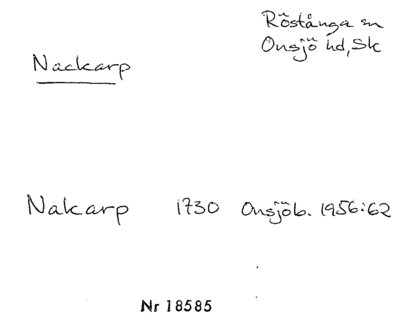 Röstånga sn
Onsjö hd, Sk
Nackarp
Nakarp 1730 Onsjöb. 1956:62
Nr 18585